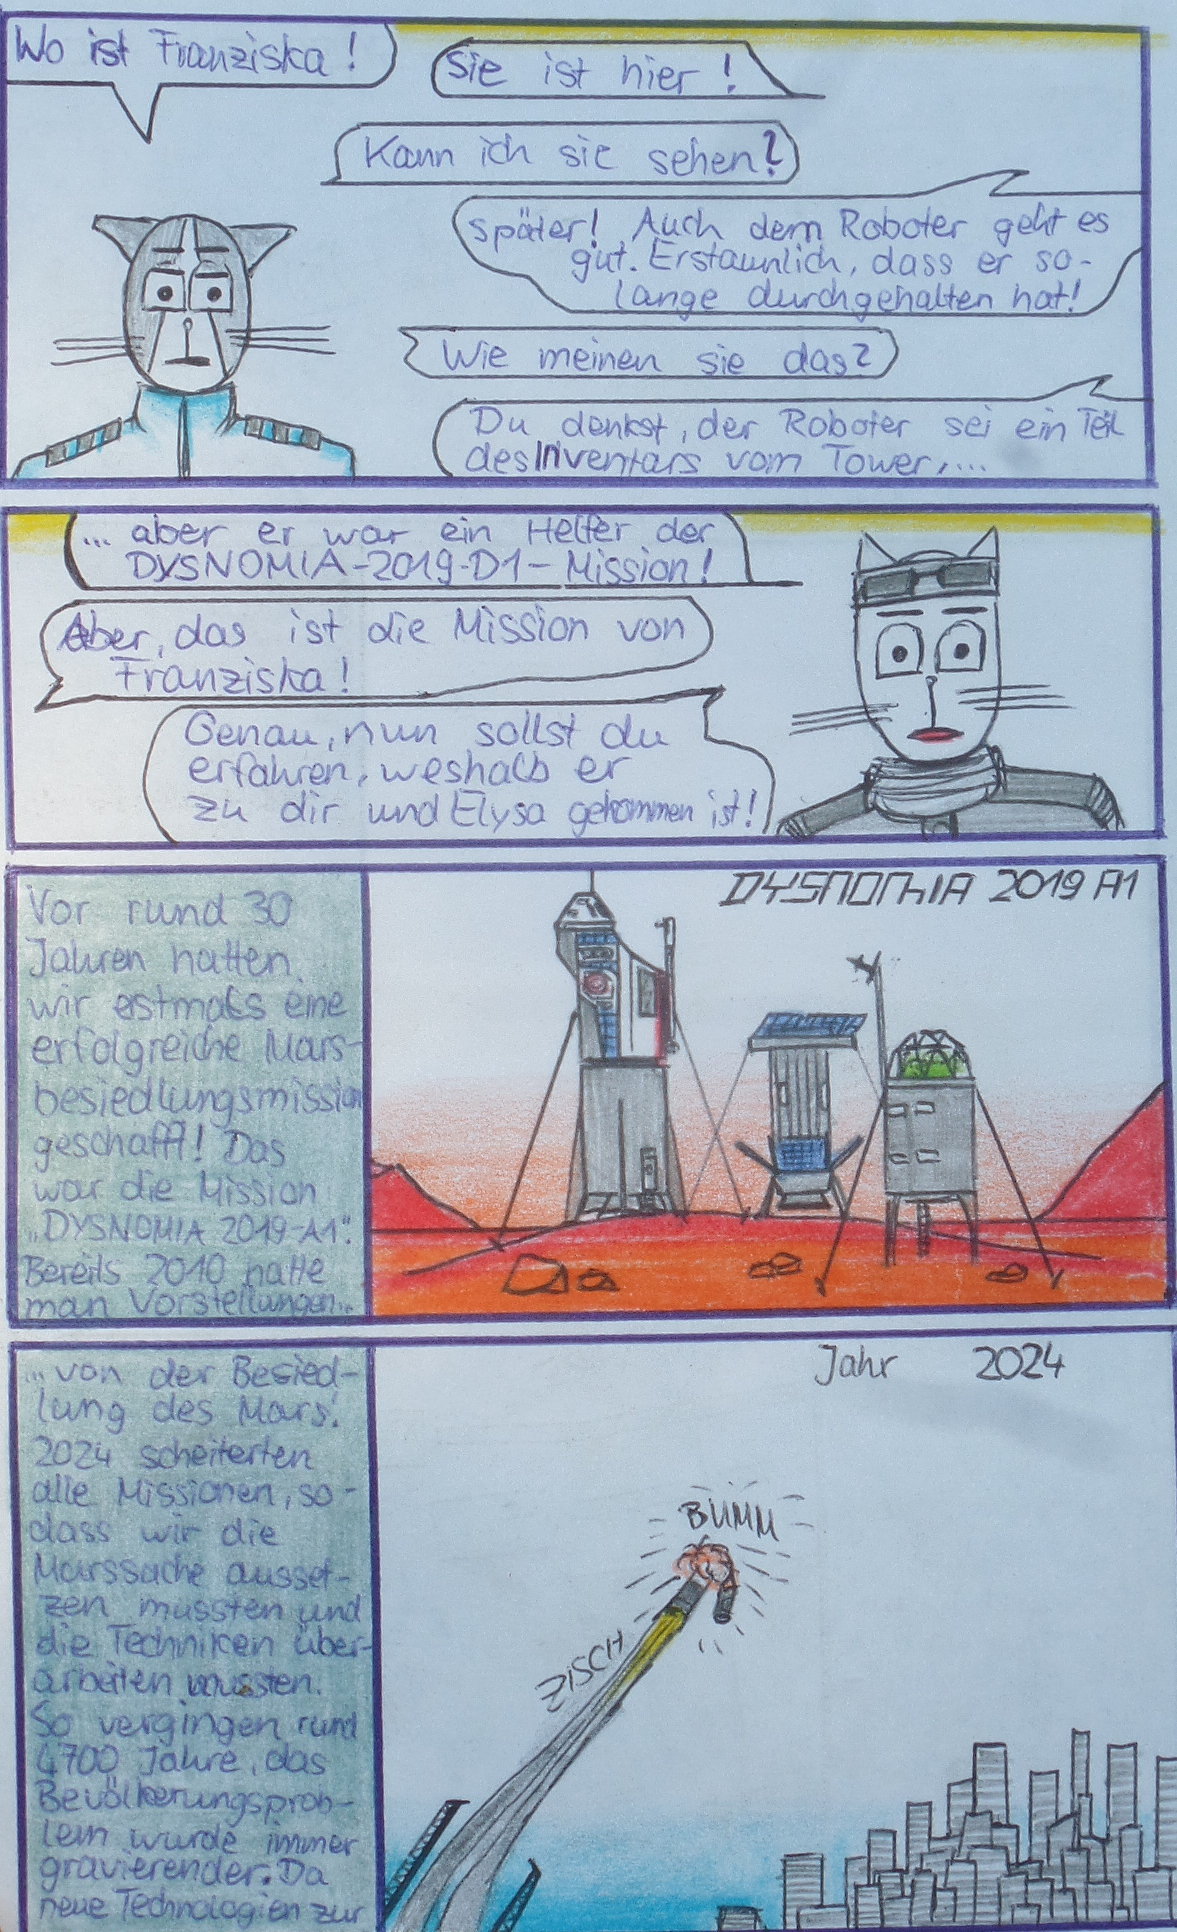 Wo ist Franziska!
Sie ist hier!
Kann ich sie sehen?
Später! Auch dem Roboter geht es
gut. Erstaunlich, dass er so-
lange durchgehalten hat!
Wie meinen sie das?
Du denkst, der Roboter sei ein Teil
des Inventars vom Tower,...
... aber er war ein Helfer der
DYSNOMIA-2019-D1-Mission!
Aber, das ist die Mission von
Franziska!
Genau, nun sollst du
erfahren, weshalb er
zu dir und Elysa gekommen ist!
DYSNOMIA 2019 A1
Vor rund 30
Jahren hatten
wir erstmals eine
erfolgreiche Mars-
besiedlungsmission
geschafft! Das
war die Mission
„DYSNOMIA 2019-A1".
Bereits 2010 hatte
man Vorstellungen...
Jahr 2024
...von der Besied-
lung des Mars!
2024 scheiterten
alle Missionen, so-
dass wir die
Marssache ausset-
zen mussten und
die Techniken über-
arbeiten mussten.
So vergingen rund
4700 Jahre, das
Bevölkerungsprob-
lem wurde immer
gravierender. Da
neue Technologien zur
BUMM
ZISCH